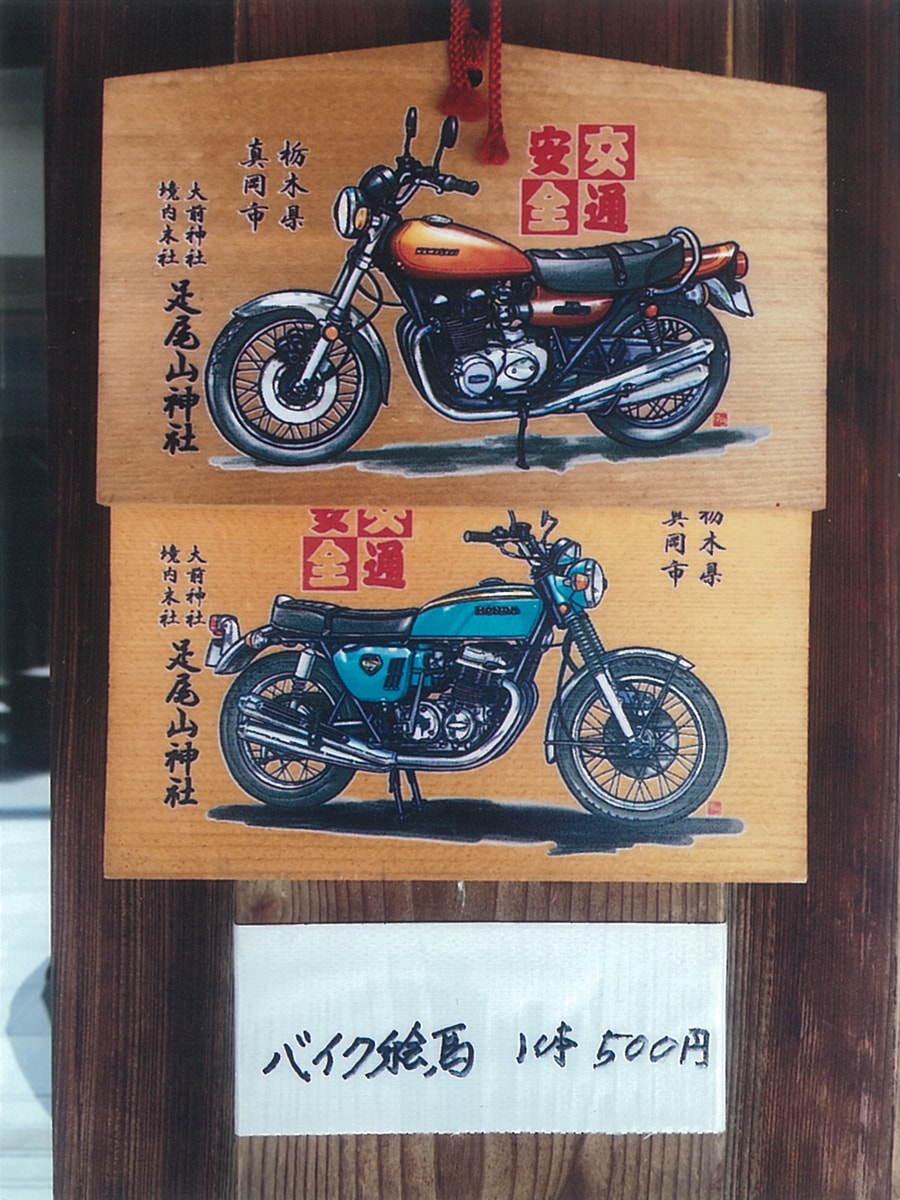 交通
安全
栃木県
真岡市
大前神社
境内末社
足尾山神社
KAWASAKI
交通
安全
栃木県
真岡市
大前神社
境内末社
足尾山神社
HONDA
バイク絵馬 1体 500円